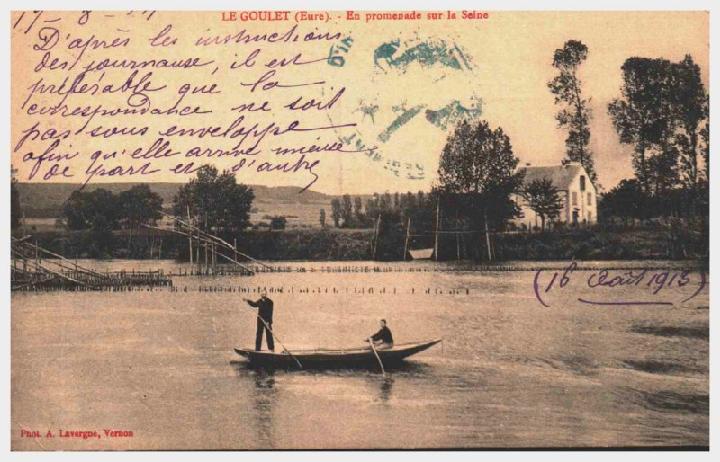 LE GOULET (Eure). - En promenade sur la Seine
D'après les instructions
des journause, il est
préférable que la
correspondance ne soit
pas sous enveloppe
afin qu'elle arrive mieux
de part et d'autre
(16 Août 1915)
Phot. A. Lavergne, Vernon